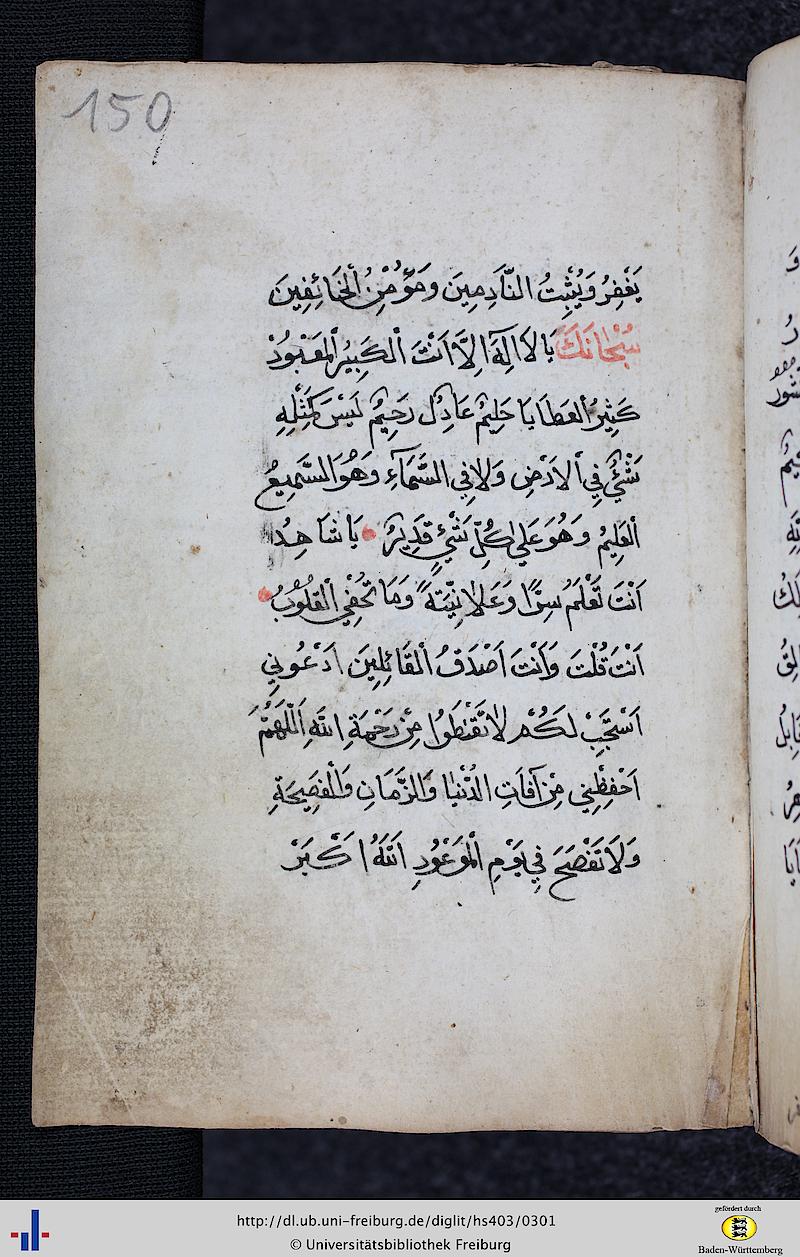 150
يَغْفِرُ وَيُثِبْتُ النَّادِمِينَ وَمُؤْمِنُ الْخَائِفِينَ
سُبْحَانَكَ يَا لَا اِلَهَ اِلَّا اَنْتَ الْكَبِيرُ الْمَعْبُودْ
كَثِيرُ الْعَطَايَا حَلِيمٌ عَادِلٌ رَحِيمٌ لَيْسَ كَمِثْلِهِ
شَيْءٌ فِي الْاَرْضِ وَلَا فِي السَّمَآءِ وَهُوَ السَّمِيعُ
الْعَلِيمُ وَهُوَ عَلَي كُلِّ شَيْءٍ قَدِيرٌ يَا شَاهِدُ
اَنْتَ تَعْلَمُ سِرًّا وَعَلَانِيَتَهُ وَمَا تُخْفِي الْقُلُوبُ
اَنْتَ قُلْتَ وَاَنْتَ اَصْدَقُ الْقَائِلِينَ ادْعُونِي
اَسْتَجِبْ لَكُمْ لَا تَقْنَطُوا مِنْ رَحْمَةِ اللهِ اَللّٰهُمَّ
اَحْفِظْنِي مِنْ آفَاتِ الدُّنْيَا وَالزَّمَانِ وَالْفَصِيحَةِ
وَلَا تَفْصَحَ فِي يَوْمِ الْمَوْعُودِ اَللهُ اَكْبَرْ
http://dl.ub.uni-freiburg.de/diglit/hs403/0301
© Universitätsbibliothek Freiburg
gefördert durch
Baden-Württemberg